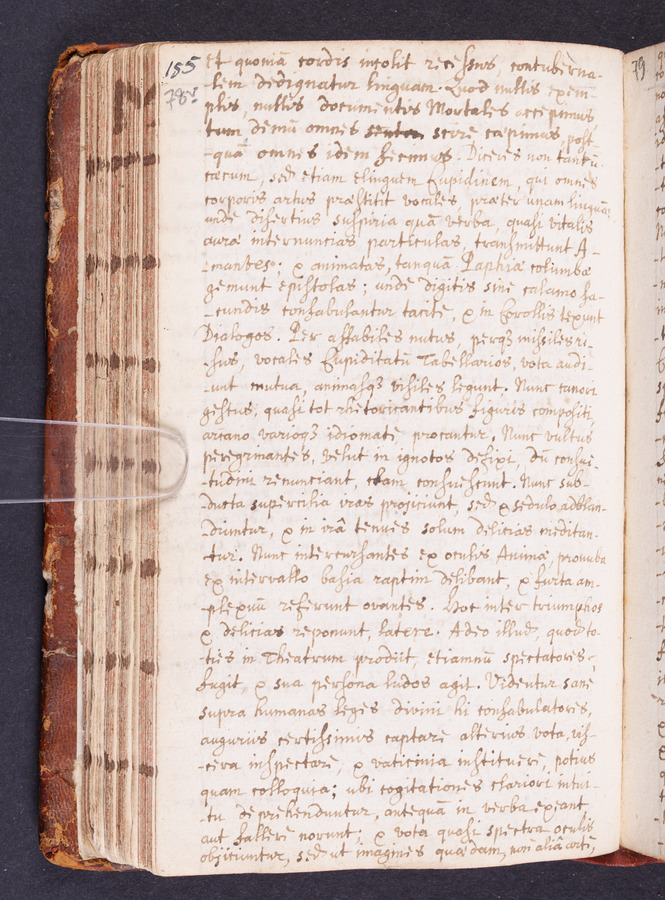 155
78v
79
Et quoniã cordis incolit recessus, contuberna-
-lem dedignatur linguam. Quod nullis exem-
plis, nullis documentis Mortales accepimus
tum demũ omnes scire cœpimus, post-
-quã omnes idem fecimus. Diceres non tantũ
cæcum, sed etiam elinguem Cupidinem, qui omnes
corporis artus præstitit vocales, præter unam linguã:
unde disertius suspiria quã verba, quasi vitalis
auræ internuncias particulas, transmittunt A-
-mantes; & animatas, tanquã Paphiæ columbæ
gemunt epistolas; unde digitis sine calamo fa-
-cundis confabulantur tacite, & in Corollis texunt
Dialogos. Per affabiles nutus, perq3 missiles ri-
-sus, vocales Cupiditatũ Tabellarios, vota audi-
-unt mutua, animasq3 visiles legunt. Nunc canori
gestus, quasi tot rhetoricantibus figuris compositi,
arcano varioq3 idiomate procantur. Nunc vultus
peregrinantes, velut in ignotos defixi, dũ consue-
-tudini renunciant, clam consuescunt. Nunc sub-
-ducta supercilia iras projiciunt, sed & sedulo adblan-
-diuntur, & in irâ tenues solum delicias meditan-
-tur. Nunc intercursantes ex oculis Animæ, pronuba
ex intervallo basia raptim delibant, & furta am-
-plexuũ referunt ovantes. Hoc inter triumphos
& delicias reponunt, latere. Adeo illud, quod to-
-ties in Theatrum prodiit, etiamnũ spectatores
fugit, & sua persona ludos agit. Videntur sane
supra humanas leges divini hi confabulatores,
auguriis certissimis captare alterius vota, vis-
-cera inspectare, & vaticinia instituere, potius
quam colloquia; ubi cogitationes clariori intui-
-tu deprehenduntur, antequã in verba exeant
aut fallere norunt; & vota quasi spectra oculis
objiciuntur, sed ut imagines quædam, non aliâ